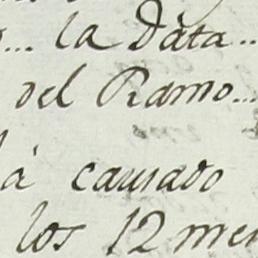 la Dàta..
del Ramo...
à causado
los 12